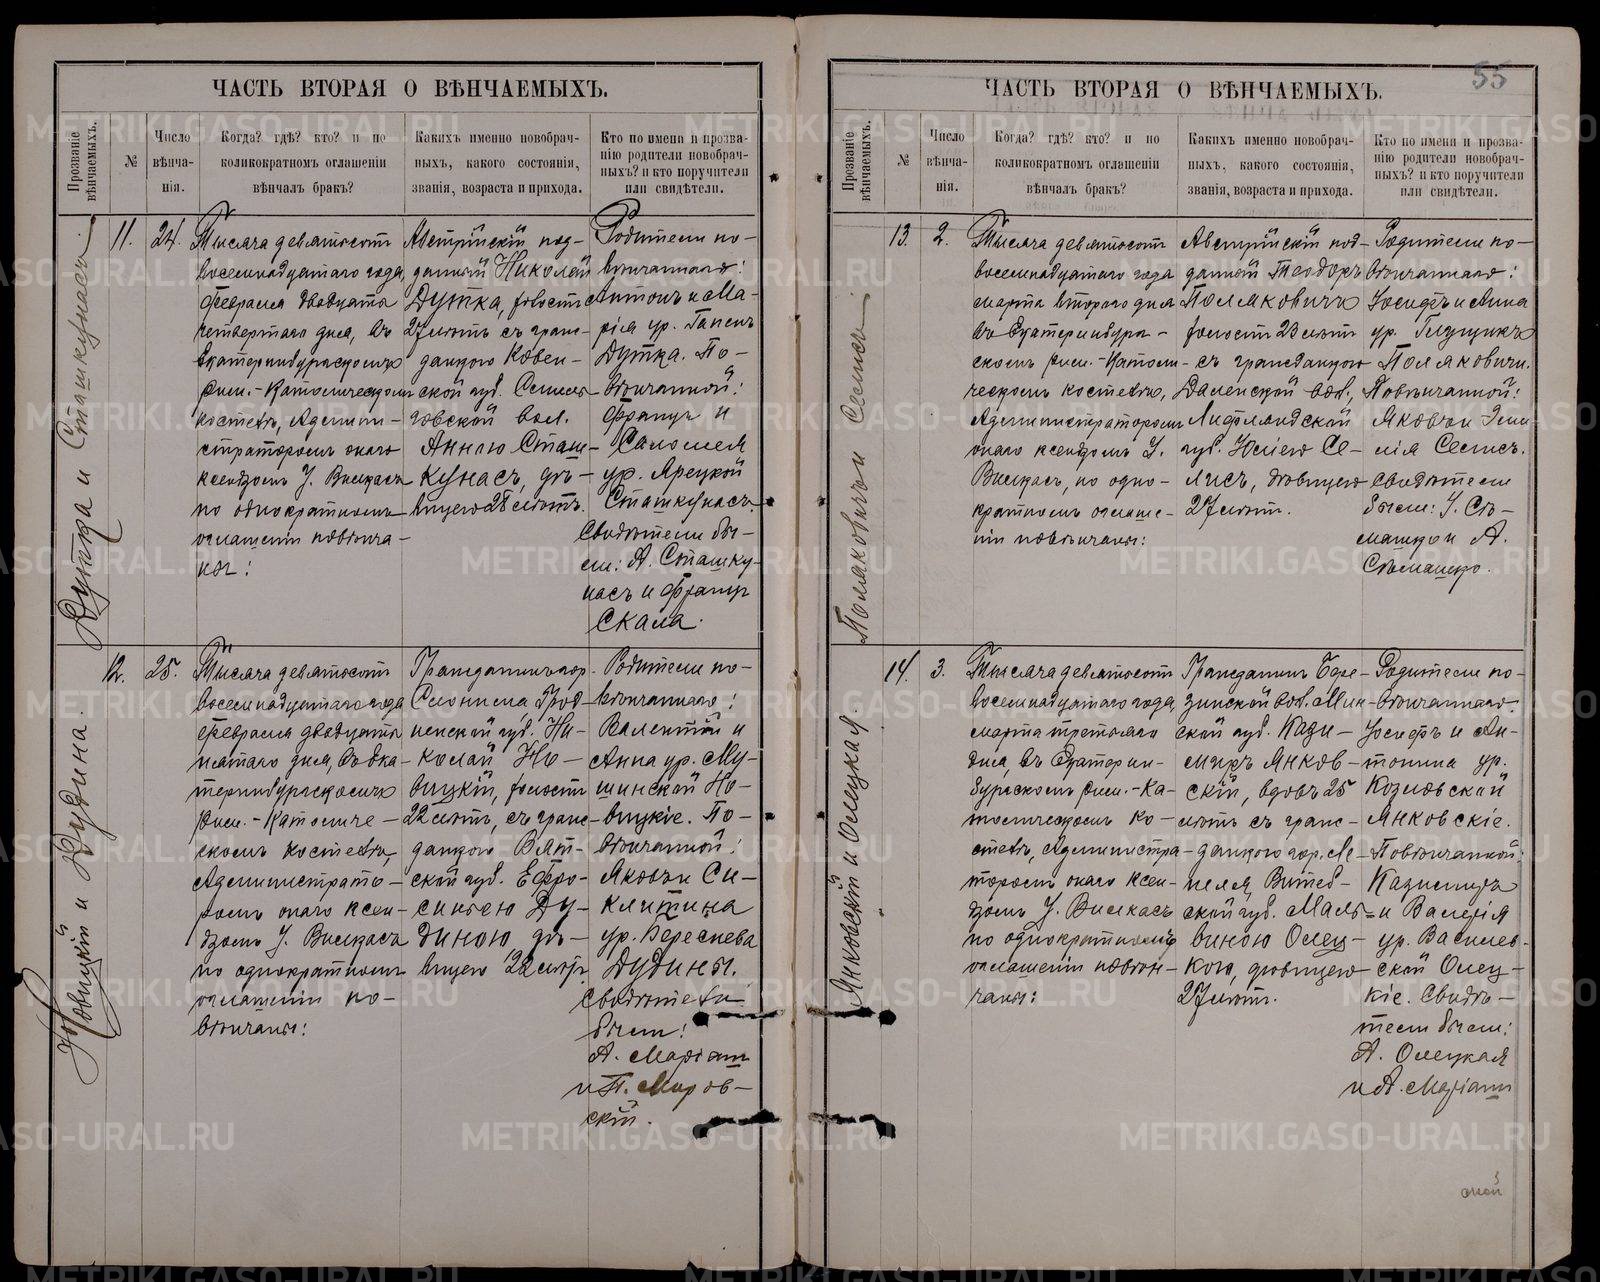 ЧАСТЬ ВТОРАЯ О ВѢНЧАЕМЫХЪ.
Прозваніе вѣнчаемыхъ.
№
Число
вѣнча-
нія.
Когда? гдѣ? кто? и по
коликократномъ оглашеніи
вѣнчалъ бракъ?
Какихъ именно новобрач-
ныхъ, какого состоянія,
званія, возраста и прихода.
Кто по имени и прозва-
нію родители новобрач-
ныхъ? и кто поручители
или свидѣтели.
Дутка и Сташкунасъ.
11.
24.
Тысяча девятьсотъ
восемнадцатаго года,
февраля двадцать
четвертаго дня, въ
Екатеринбургскомъ
Рим.-Католическомъ
костелѣ, Админи-
страторомъ онаго
ксендзомъ І. Вилкасъ
по однократномъ
оглашеніи повѣнча-
ны:
Австрійскій под-
данный Николай
Дутка, холостъ
27 лѣтъ съ граж-
данкою Ковен-
ской губ.
вол.
Анною Сташ-
кунасъ, дѣ-
вицею 28 лѣтъ.
Родители по-
вѣнчаннаго:
Антонъ и Ма-
рія ур. Гапенъ
Дутка. По-
вѣнчанной:
Францъ и
Саломея
ур. Ярецкой
Сташкунасъ.
Свидѣтели бы-
ли: А. Сташку-
насъ и Францъ
Скала.
Новицкій и Дудина.
12.
25.
Тысяча девятьсотъ
восемнадцатаго года
февраля двадцать
пятаго дня, въ Ека-
теринбургскомъ
Рим.-Католиче-
скомъ костелѣ,
Администрато-
ромъ онаго ксен-
дзомъ І. Вилкасъ
по однократномъ
оглашеніи по-
вѣнчаны:
Гражданинъ гор.
Слонима Грод-
ненской губ. Ни-
колай Но-
вицкій, холостъ
22 лѣтъ, съ граж-
данкою Вят-
ской губ. Ефро-
синьею Ду-
диною, дѣ-
вицею 22 лѣтъ.
Родители по-
вѣнчаннаго:
Валентій и
Анна ур. Му-
шинской Но-
вицкіе. По-
вѣнчанной:
Яковъ и
Клитина
ур. Береснева
Дудины.
Свидѣтели
были:
А. Маріаш
и П. Миров-
скій.
55
ЧАСТЬ ВТОРАЯ О ВѢНЧАЕМЫХЪ.
Прозваніе вѣнчаемыхъ.
№
Число
вѣнча-
нія.
Когда? гдѣ? кто? и по
коликократномъ оглашеніи
вѣнчалъ бракъ?
Какихъ именно новобрач-
ныхъ, какого состоянія,
званія, возраста и прихода.
Кто по имени и прозва-
нію родители новобрач-
ныхъ? и кто поручители
или свидѣтели.
Поляковичъ и Селисъ
13.
2.
Тысяча девятьсотъ
восемнадцатаго года
марта второго дня
въ Екатеринбург-
скомъ Рим.-Католи-
ческомъ костелѣ,
Администраторомъ
онаго ксендзомъ І.
Вилкасъ, по одно-
кратномъ оглаше-
ніи повѣнчаны:
Австрійскій под-
данный Теодоръ
Поляковичъ
холостъ 23 лѣтъ
съ гражданкою
вол.,
Лифляндской
губ. Юліею Се-
лисъ, дѣвицею
27 лѣтъ.
Родители по-
вѣнчаннаго:
Іосифъ и Анна
ур. Глущикъ
Поляковичи.
Повѣнчанной:
Яковъ и Эми-
лія Селисъ.
Свидѣтели
были: І. Сѣ-
машко и А.
Сѣмашко.
Янковскій и Олецкая.
14.
3.
Тысяча девятьсотъ
восемнадцатаго года,
марта третьяго
дня, въ Екатерин-
бургскомъ Рим.-Ка-
толическомъ ко-
стелѣ, Администра-
торомъ онаго ксен-
дзомъ І. Вилкасъ
по однократномъ
оглашеніи повѣн-
чаны:
Гражданинъ Бере-
зинской вол. Мин-
ской губ. Кази-
миръ Янков-
скій, вдовъ 25
лѣтъ съ граж-
данкою гор. Ле-
пеля, Витеб-
ской губ. Маль-
виною Олец-
кою, дѣвицею
27 лѣтъ.
Родители по-
вѣнчаннаго:
Іосифъ и Ан-
тонина ур.
Козловской
Янковскіе.
Повѣнчанной:
Казимиръ
и Валерія
ур. Василев-
ской Олец-
кіе. Свидѣ-
тели были:
А. Олецкая
и А. Маріаш
METRIKI.GASO-URAL.RU